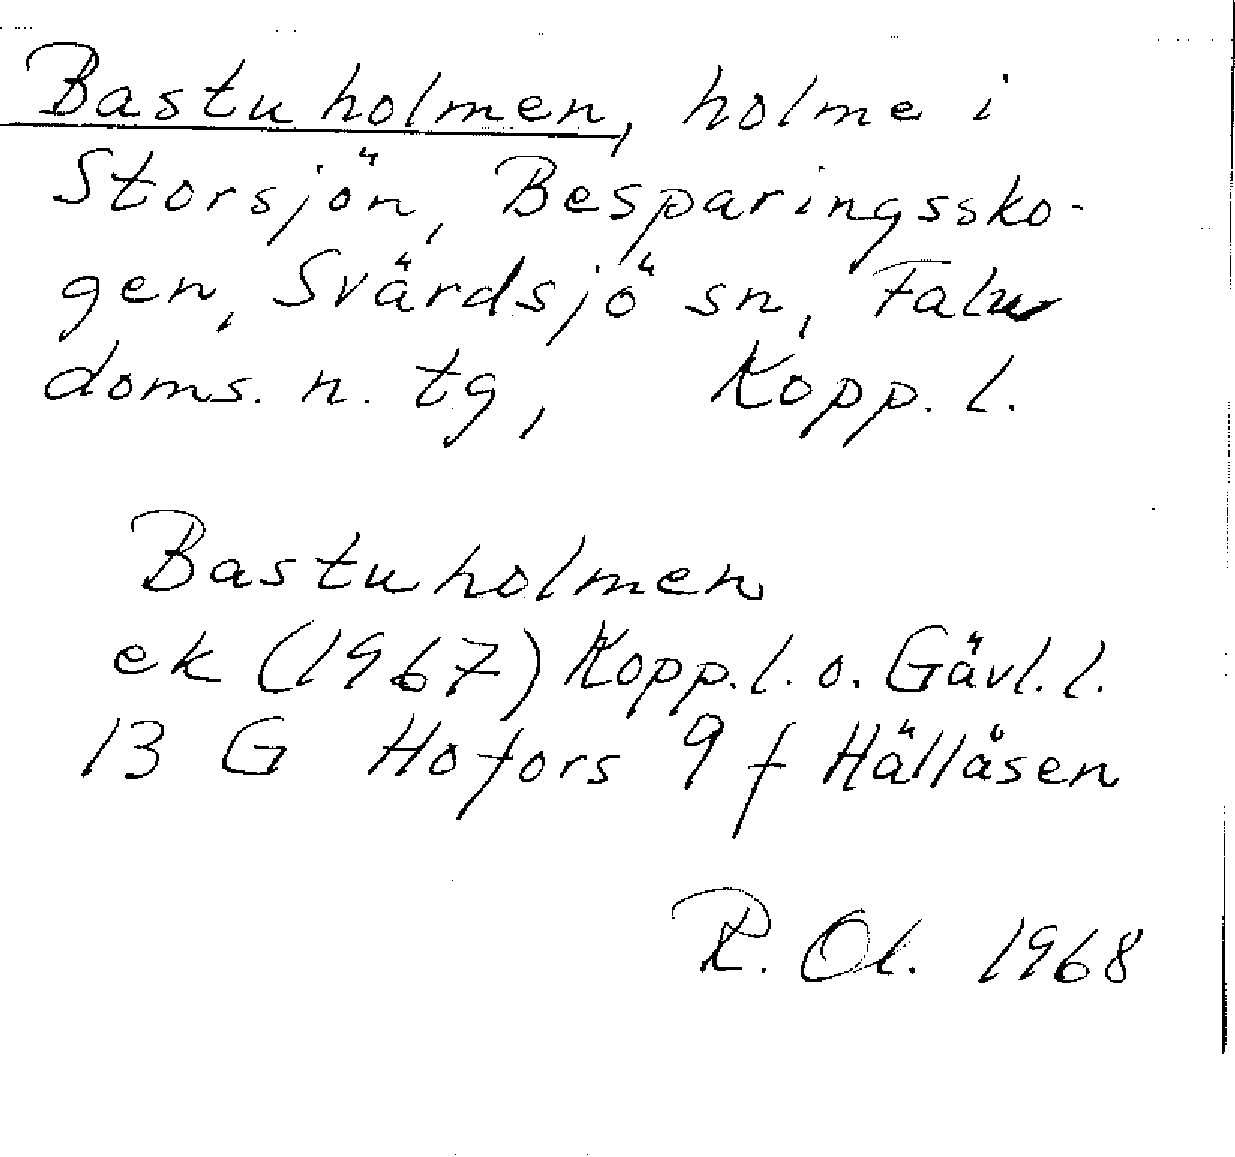 Bastuholmen, holme i
Storsjön, Besparingssko-
gen, Svärdsjö sn, Falu
doms. n. tg, Kopp. l.
Bastuholmen
ek (1967) Kopp. l. o. Gävl. l.
13 G Hofors 9 f Hällåsen
R. Ol. 1968